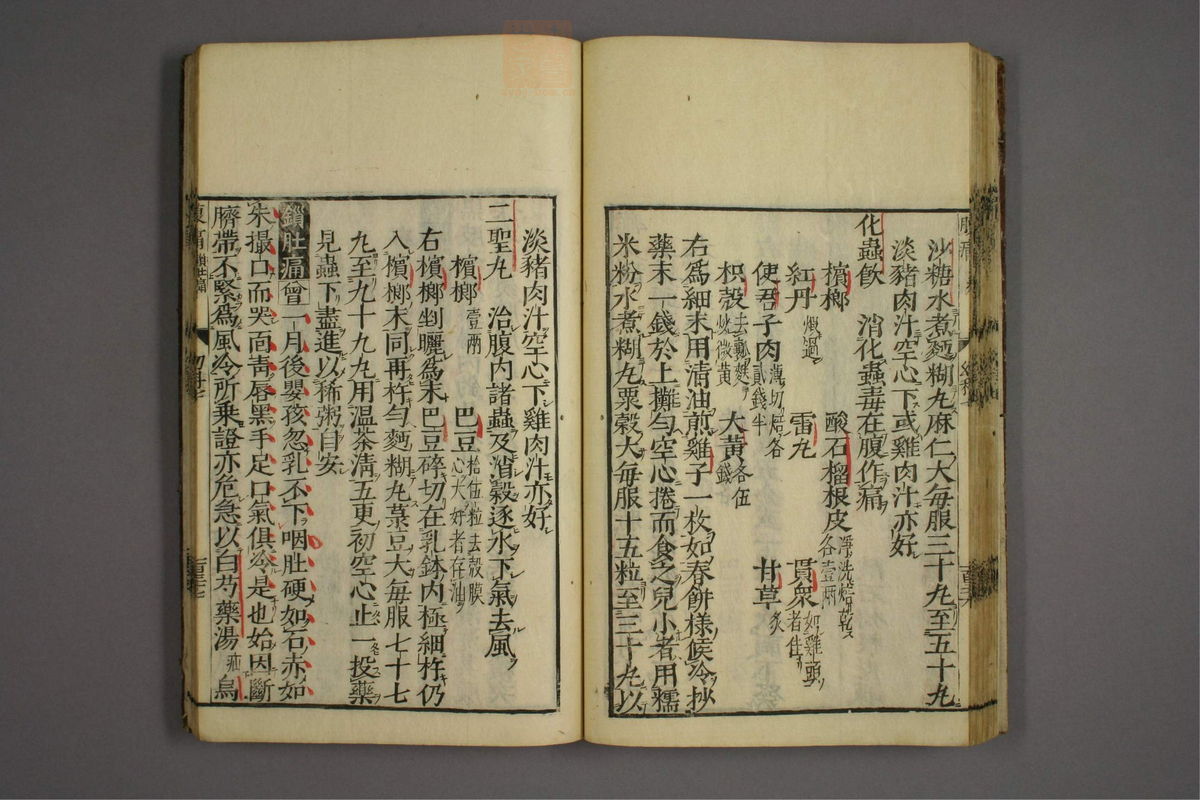 沙糖水煮麵糊丸麻仁大每服三十丸至五十丸
淡豬肉汁空心下或雞肉汁亦好
化蟲飲 消化蟲毒在腹作痛
檳榔 酸石榴根皮淨洗焙乾各壹兩
紅丹煅過 雷丸 貫衆如雞頭者佳
使君子肉薄切焙各貳錢半
枳殼去瓤麩炒微黃 大黃各伍錢 甘草炙
右爲細末用清油煎雞子一枚如春餅樣候冷抄
藥末一錢於上攤勻空心捲而食之兒小者用糯
米粉水煮糊丸粟穀大每服十五粒至三十丸以
淡豬肉汁空心下雞肉汁亦好
二聖丸 治腹內諸蟲及消穀逐水下氣去風
檳榔壹兩 巴豆拾伍粒去殼膜心大好者存油
右檳榔剉曬爲末巴豆碎切在乳鉢內極細杵仍
入檳榔末同再杵勻麵糊丸菉豆大每服七十七
丸至九十九丸用溫茶清五更初空心止一投藥
見蟲下盡進以稀粥自安
鎖肚痛會一月後嬰孩忽乳不下咽肚硬如石赤如
朱撮口而哭面靑唇黑手足口氣俱冷是也始因斷
臍帶不緊爲風冷所乘證亦危急以白芍藥湯 烏